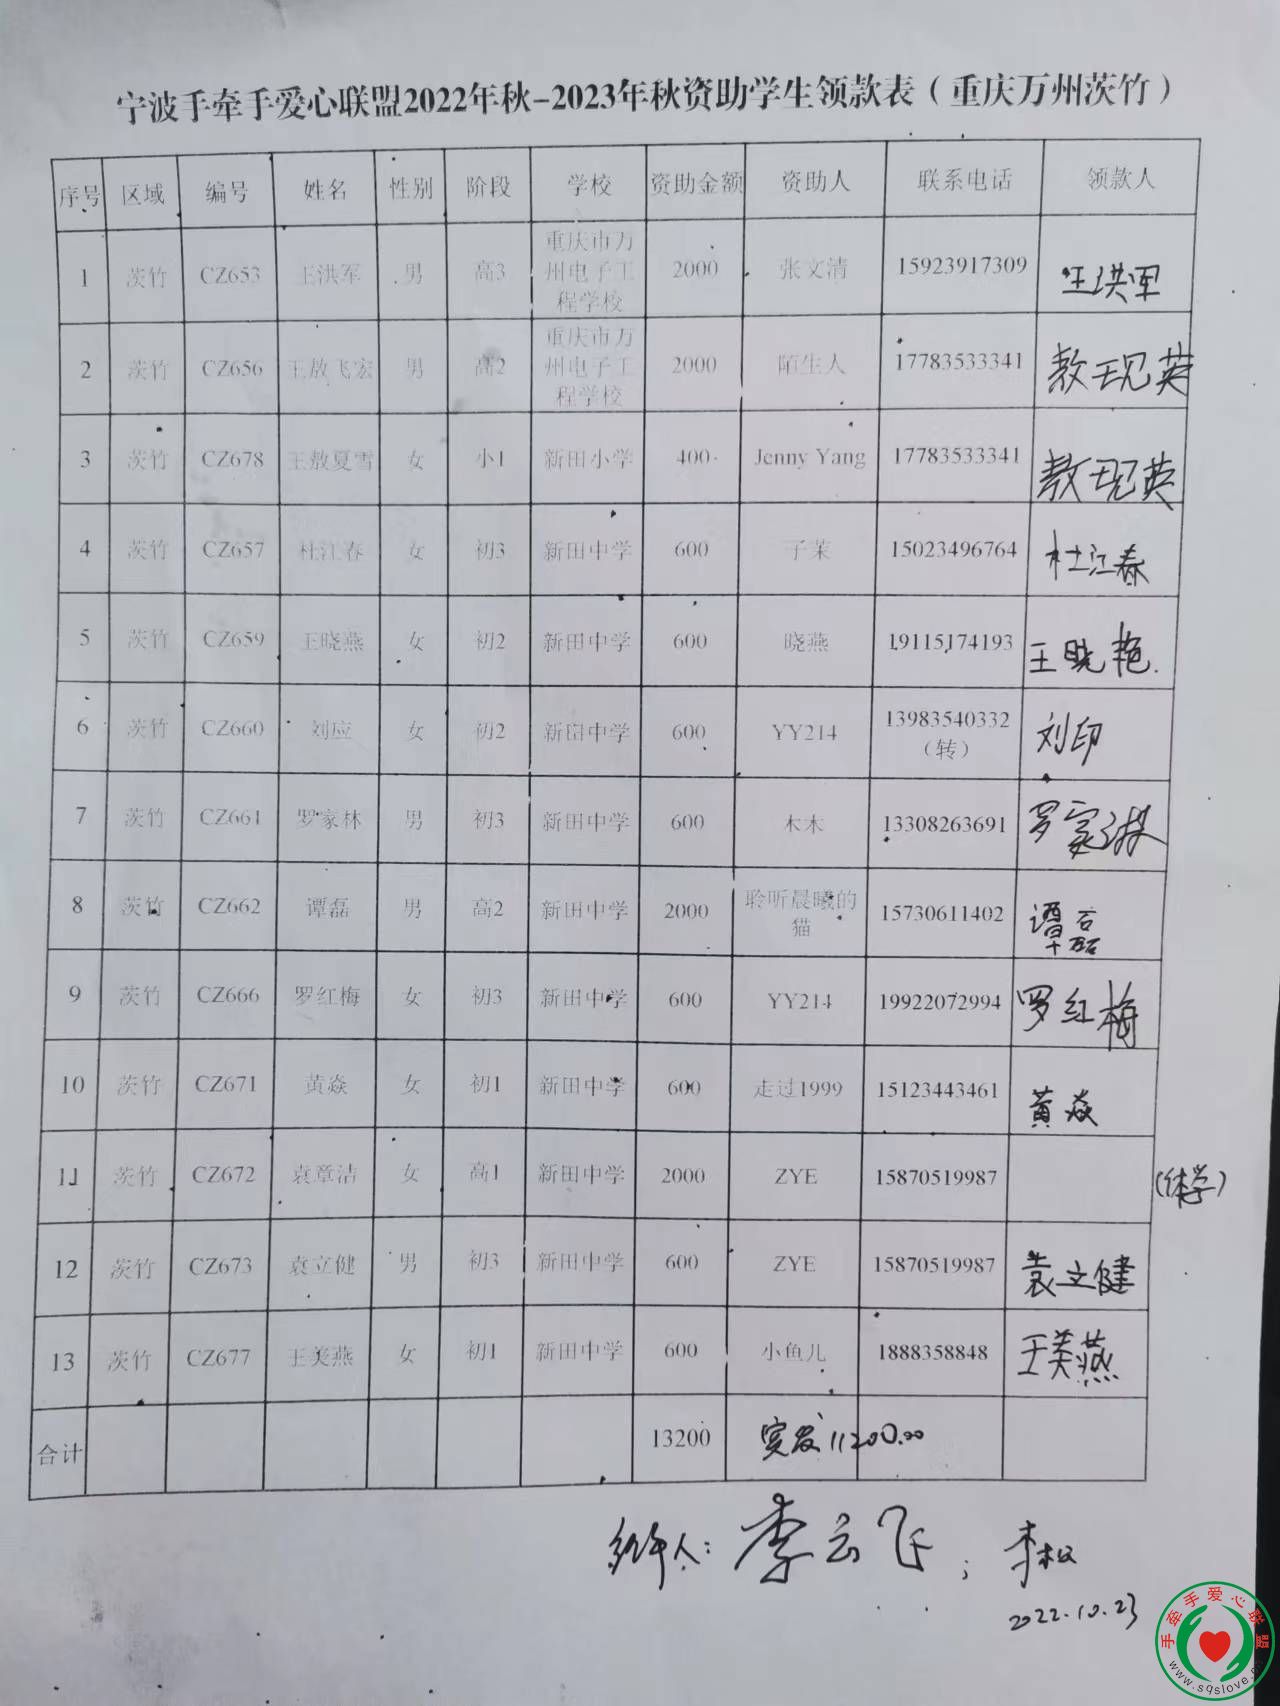 宁波手牵手爱心联盟2022年秋-2023年秋资助学生领款表（重庆万州茨竹）
序号 区域 编号 姓名 性别 阶段 学校 资助金额 资助人 联系电话 领款人
1 茨竹 CZ653 王洪军 男 高3 重庆市万州电子工程学校 2000 张文清 15923917309 王洪军
2 茨竹 CZ656 王敖飞宏 男 高2 重庆市万州电子工程学校 2000 陌生人 17783533341 敖现英
3 茨竹 CZ678 王敖夏雪 女 小1 新田小学 400 Jenny Yang 17783533341 敖现英
4 茨竹 CZ657 杜江春 女 初3 新田中学 600 子茉 15023496764 杜江春
5 茨竹 CZ659 王晓燕 女 初2 新田中学 600 晓燕 19115174193 王晓艳
6 茨竹 CZ660 刘应 女 初2 新田中学 600 YY214 13983540332（转） 刘印
7 茨竹 CZ661 罗家林 男 初3 新田中学 600 木木 13308263691 罗家琳
8 茨竹 CZ662 谭磊 男 高2 新田中学 2000 聆听晨曦的猫 15730611402 谭磊
9 茨竹 CZ666 罗红梅 女 初3 新田中学 600 YY214 19922072994 罗红梅
10 茨竹 CZ671 黄焱 女 初1 新田中学 600 走过1999 15123443461 黄焱
11 茨竹 CZ672 袁章洁 女 高1 新田中学 2000 ZYE 15870519987 (休学)
12 茨竹 CZ673 袁立健 男 初3 新田中学 600 ZYE 15870519987 袁立健
13 茨竹 CZ677 王美燕 女 初1 新田中学 600 小鱼儿 1888358848 王美燕
合计 13200 实发11200.00
经手人：李云飞；李权
2022.10.23
手牵手爱心联盟
www.sqslove.